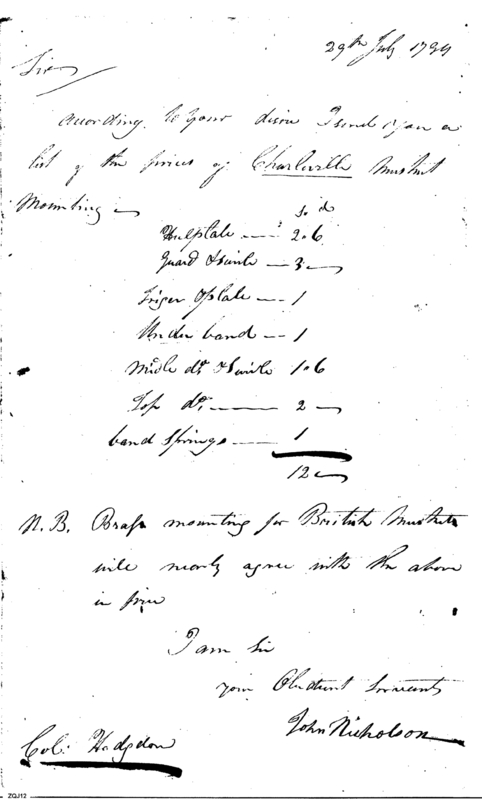 29th July 1794
Sir
According to your desire I send you a
list of the prices of Charleville Muskit
Mounting
s. d
Heelplate 2.6
Guard & Swivle 3
Triger & plate 1
Under band 1
Midle do. & Swivle 1.6
Top do. 2
band Springs 1
12
N.B. Brass mounting for British Muskets
will nearly agree with the above
in price
I am Sir
your Obedient Servant
John Nicholson
Col. Hodgdon
ZGJ12